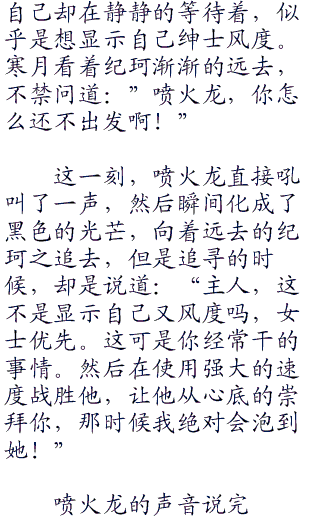 自己却在静静的等待着，似
乎是想显示自己绅士风度。
寒月看着纪珂渐渐的远去，
不禁问道：”喷火龙，你怎
么还不出发啊！”
这一刻，喷火龙直接吼
叫了一声，然后瞬间化成了
黑色的光芒，向着远去的纪
珂之追去，但是追寻的时
候，却是说道：“主人，这
不是显示自己又风度吗，女
士优先。这可是你经常干的
事情。然后在使用强大的速
度战胜他，让他从心底的崇
拜你，那时候我绝对会泡到
她！”
喷火龙的声音说完